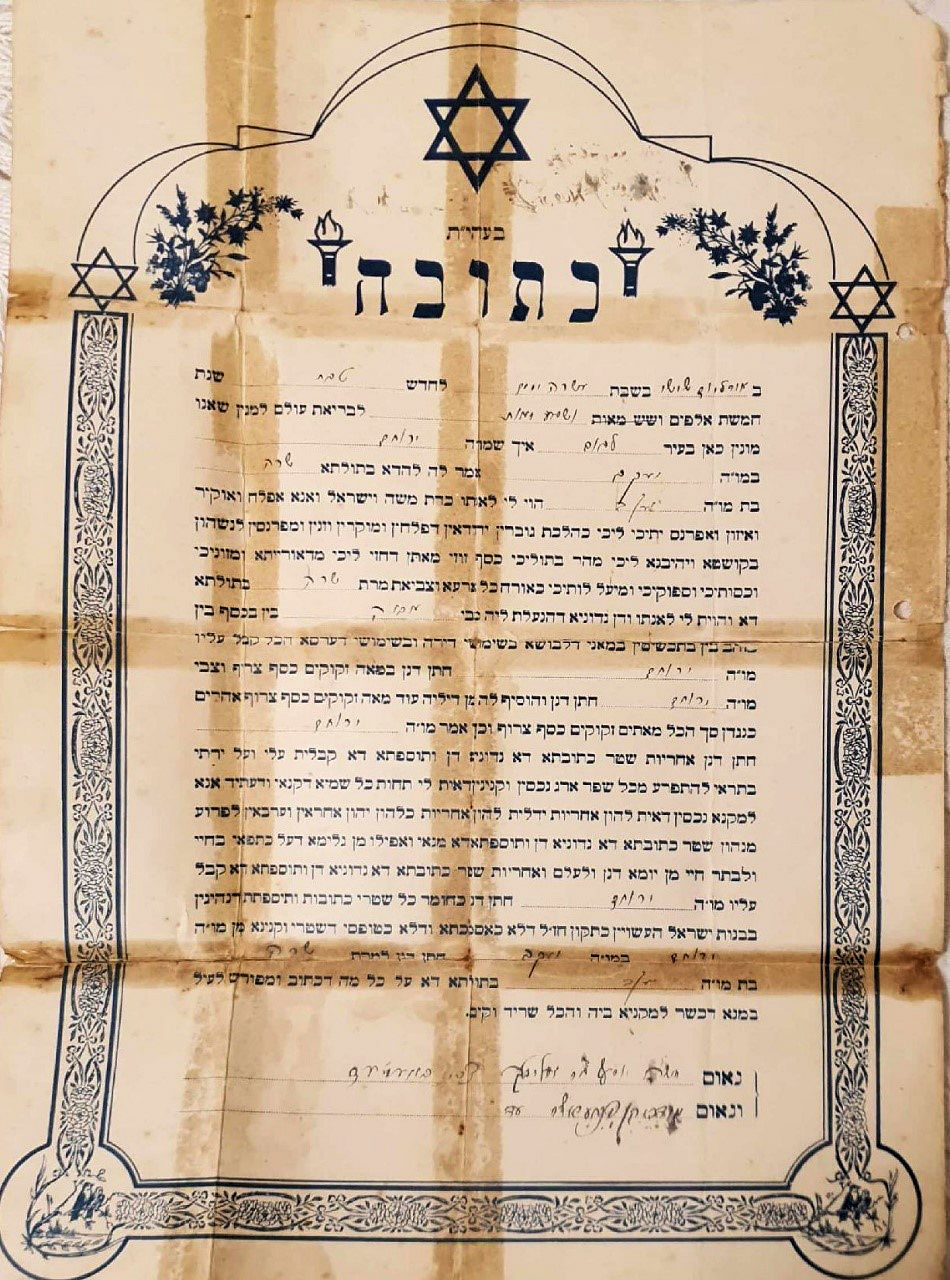 בעהי״ת
כתובה
ב שישי בשבת עשרה ימים לחדש טבת שנת
חמשת אלפים ושש מאות לבריאת עולם למנין שאנו
מונין כאן בעיר איך שמוה ירוחם
במו״ה יעקב אמר לה להדא בתולתא שרה
בת מו״ה הוי לי לאנתו כדת משה וישראל ואנא אפלח ואוקיר
ואיזון ואפרנס יתיכי ליכי כהלכת גוברין יהודאין דפלחין ומוקרין וזנין ומפרנסין לנשהון
בקושטא ויהיבנא ליכי מהר בתוליכי כסף זוזי מאתן דחזי ליכי מדאורייתא ומזוניכי
וכסותיכי וספוקיכי ומיעל לותיכי כאורח כל ארעא וצביאת מרת שרה בתולתא
דא והוית לי לאנתו ודן נדוניא דהנעלת ליה מבי בין בכסף בין
בזהב בין בתכשיטין במאני דלבושא בשימושי דירה ובשימושי דערסא הכל קבל עליו
מו״ה ירוחם חתן דנן במאה זקוקים כסף צרוף וצבי
מו״ה ירוחם חתן דנן והוסיף לה מן דיליה עוד מאה זקוקים כסף צרוף אחרים
כנגדן סך הכל מאתים זקוקים כסף צרוף וכן אמר מו״ה ירוחם
חתן דנן אחריות שטר כתובתא דא נדוניא דן ותוספתא דא קבלית עלי ועל ירתי
בתראי להתפרע מכל שפר ארג נכסין וקנינין דאית לי תחות כל שמיא דקנאי ודעתיד אנא
למקנא נכסין דאית להון אחריות ודלית להון אחריות כלהון יהון אחראין וערבאין לפרוע
מנהון שטר כתובתא דא נדוניא דן ותוספתא דא מנאי ואפילו מן גלימא דעל כתפאי בחיי
ולבתר חיי מן יומא דנן ולעלם ואחריות שטר כתובתא דא נדוניא דן ותוספתא דא קבל
עליו מו״ה ירוחם חתן דנן כחומר כל שטרי כתובות ותוספתת דנהיגין
בבנות ישראל העשויין כתקון חז״ל דלא כאסמכתא ודלא כטופסי דשטרי וקנינא מן מו״ה
ירוחם במו״ה יעקב חתן דנן למרת שרה
בת מו״ה בתולתא דא על כל מה דכתוב ומפורש לעיל
במנא דכשר למקניא ביה והכל שריר וקים.
נאום
ונאום עד